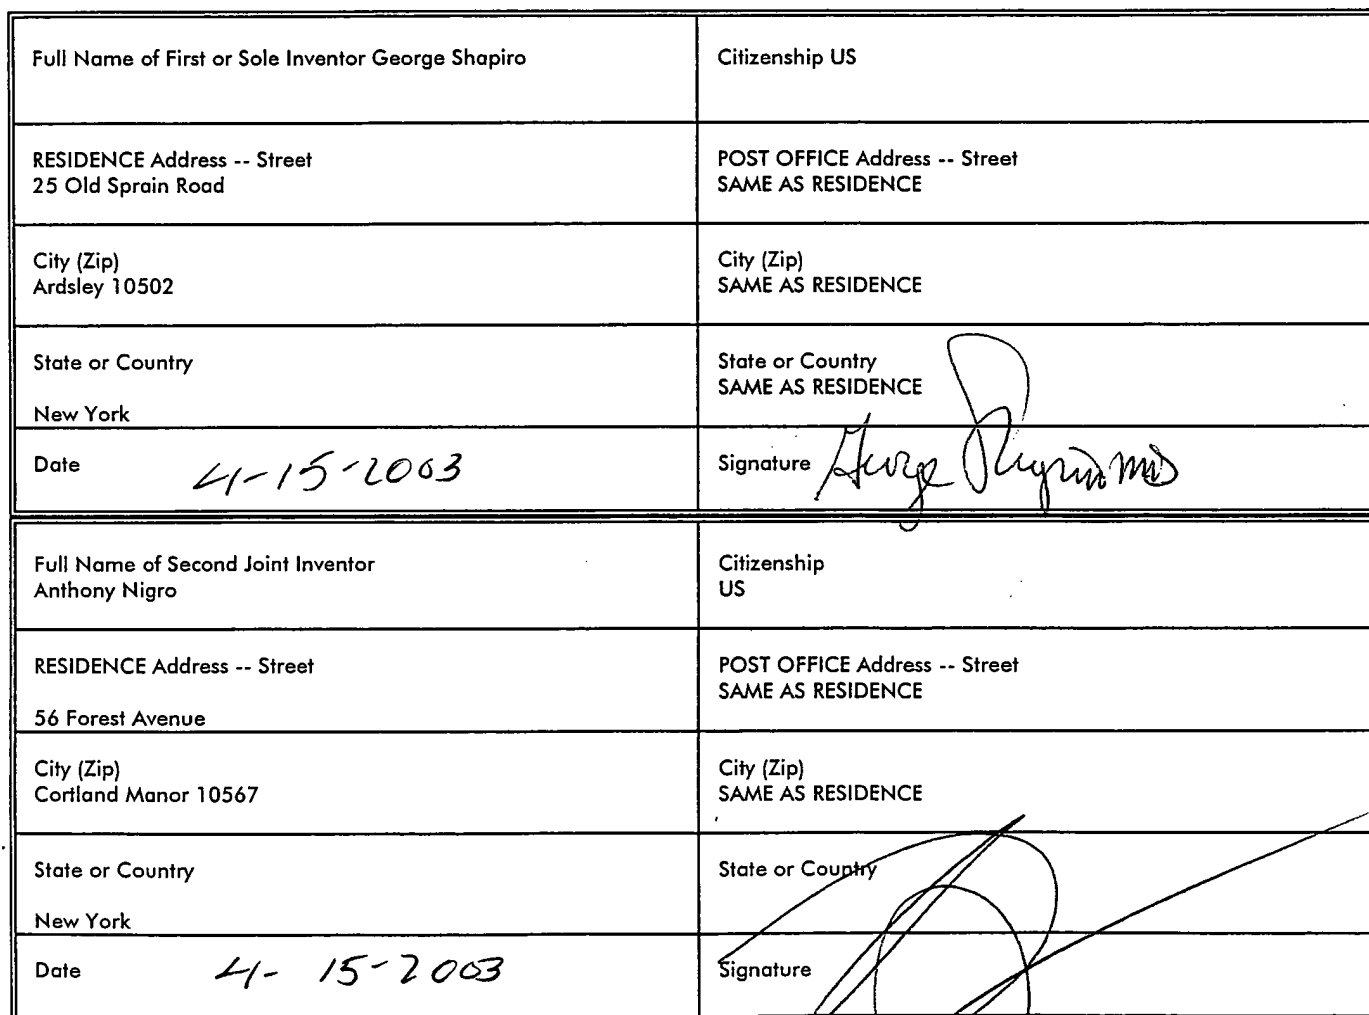 Full Name of First or Sole Inventor George Shapiro
Citizenship US
RESIDENCE Address -- Street
25 Old Sprain Road
POST OFFICE Address -- Street
SAME AS RESIDENCE
City (Zip)
Ardsley 10502
City (Zip)
SAME AS RESIDENCE
State or Country
New York
State or Country
SAME AS RESIDENCE
Date 4-15-2003
Signature George
Full Name of Second Joint Inventor
Anthony Nigro
Citizenship
US
RESIDENCE Address -- Street
56 Forest Avenue
POST OFFICE Address -- Street
SAME AS RESIDENCE
City (Zip)
Cortland Manor 10567
City (Zip)
SAME AS RESIDENCE
State or Country
New York
State or Country
Date 4-15-2003
Signature